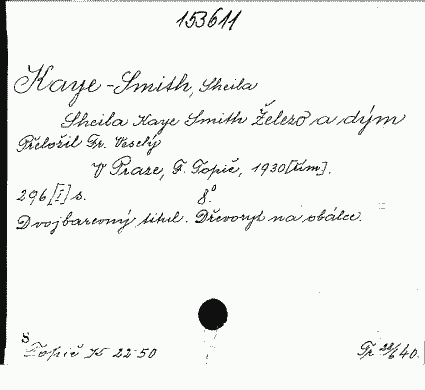 153611
Kaye-Smith, Sheila
Sheila Kaye Smith Železo a dým
Přeložil Fr. Veselý
V Praze, F. Topič, 1930 [tím].
296 [I] s. 8°
Dvojbarevný titul. Dřevoryt na obálce.
S
Topič K 22·50
Tr 22/6 40.